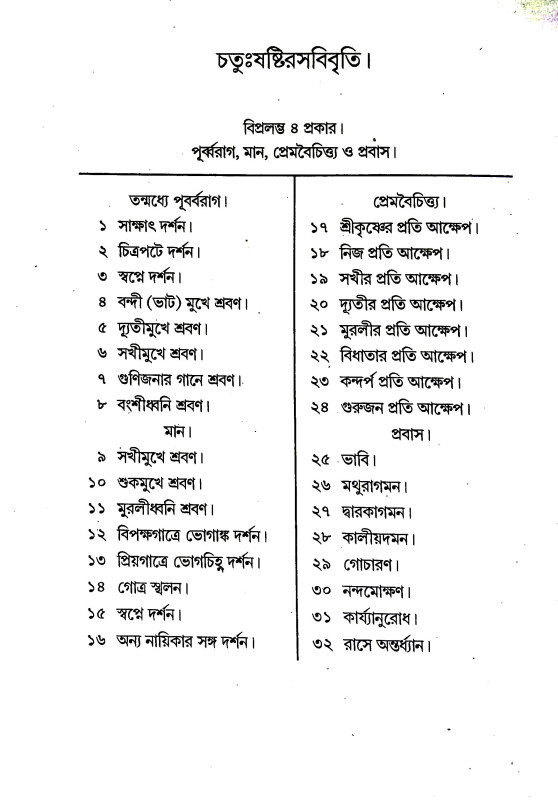 চতুঃষষ্টিরসবিবৃতি।
বিপ্রলম্ভ ৪ প্রকার।
পূর্ব্বরাগ, মান, প্রেমবৈচিত্ত্য ও প্রবাস।
তন্মধ্যে পূবর্বরাগ।
১ সাক্ষাৎ দর্শন।
২ চিত্রপটে দর্শন।
৩ স্বপ্নে দর্শন।
৪ বন্দী (ভাট) মুখে শ্রবণ।
৫ দ্যূতীমুখে শ্রবণ।
৬ সখীমুখে শ্রবণ।
৭ গুণিজনার গানে শ্রবণ।
৮ বংশীধ্বনি শ্রবণ।
মান।
৯ সখীমুখে শ্রবণ।
১০ শুকমুখে শ্রবণ।
১১ মুরলীধ্বনি শ্রবণ।
১২ বিপক্ষগাত্রে ভোগাঙ্ক দর্শন।
১৩ প্রিয়গাত্রে ভোগচিহ্ন দর্শন।
১৪ গোত্র স্খলন।
১৫ স্বপ্নে দর্শন।
১৬ অন্য নায়িকার সঙ্গ দর্শন।
প্রেমবৈচিত্ত্য।
১৭ শ্রীকৃষ্ণের প্রতি আক্ষেপ।
১৮ নিজ প্রতি আক্ষেপ।
১৯ সখীর প্রতি আক্ষেপ।
২০ দ্যূতীর প্রতি আক্ষেপ।
২১ মুরলীর প্রতি আক্ষেপ।
২২ বিধাতার প্রতি আক্ষেপ।
২৩ কন্দর্প প্রতি আক্ষেপ।
২৪ গুরুজন প্রতি আক্ষেপ।
প্রবাস।
২৫ ভাবি।
২৬ মথুরাগমন।
২৭ দ্বারকাগমন।
২৮ কালীয়দমন।
২৯ গোচারণ।
৩০ নন্দমোক্ষণ।
৩১ কার্য্যানুরোধ।
৩২ রাসে অন্তর্ধ্যান।